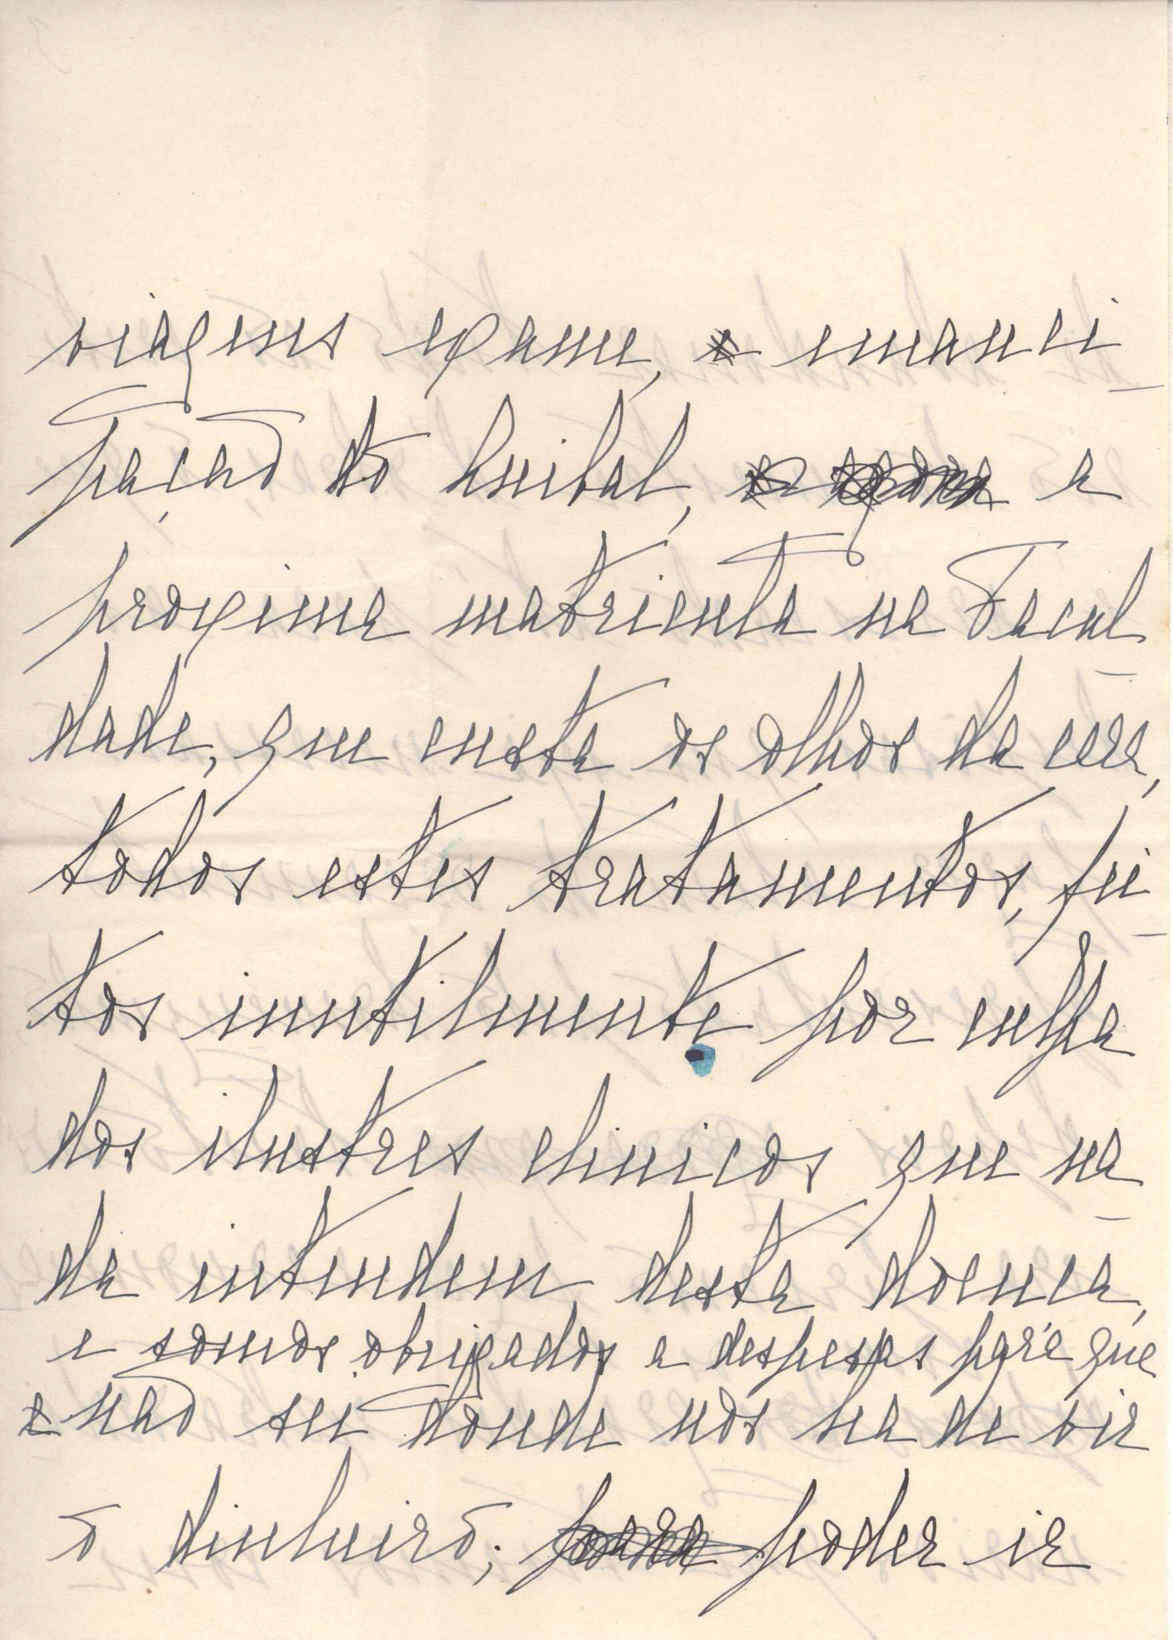 viagens exame, e emanci-
pação do Anibal, a
proxima matricula na Facul-
dade, que custa os olhos da cara,
todos estes tratamentos, fei-
tos inutilmente por culpa
dos ilustres clinicos que na-
da intendem desta doença,
e somos obrigados a despesas para que
não sei donde nos ha de vir
o dinheiro; poder ir